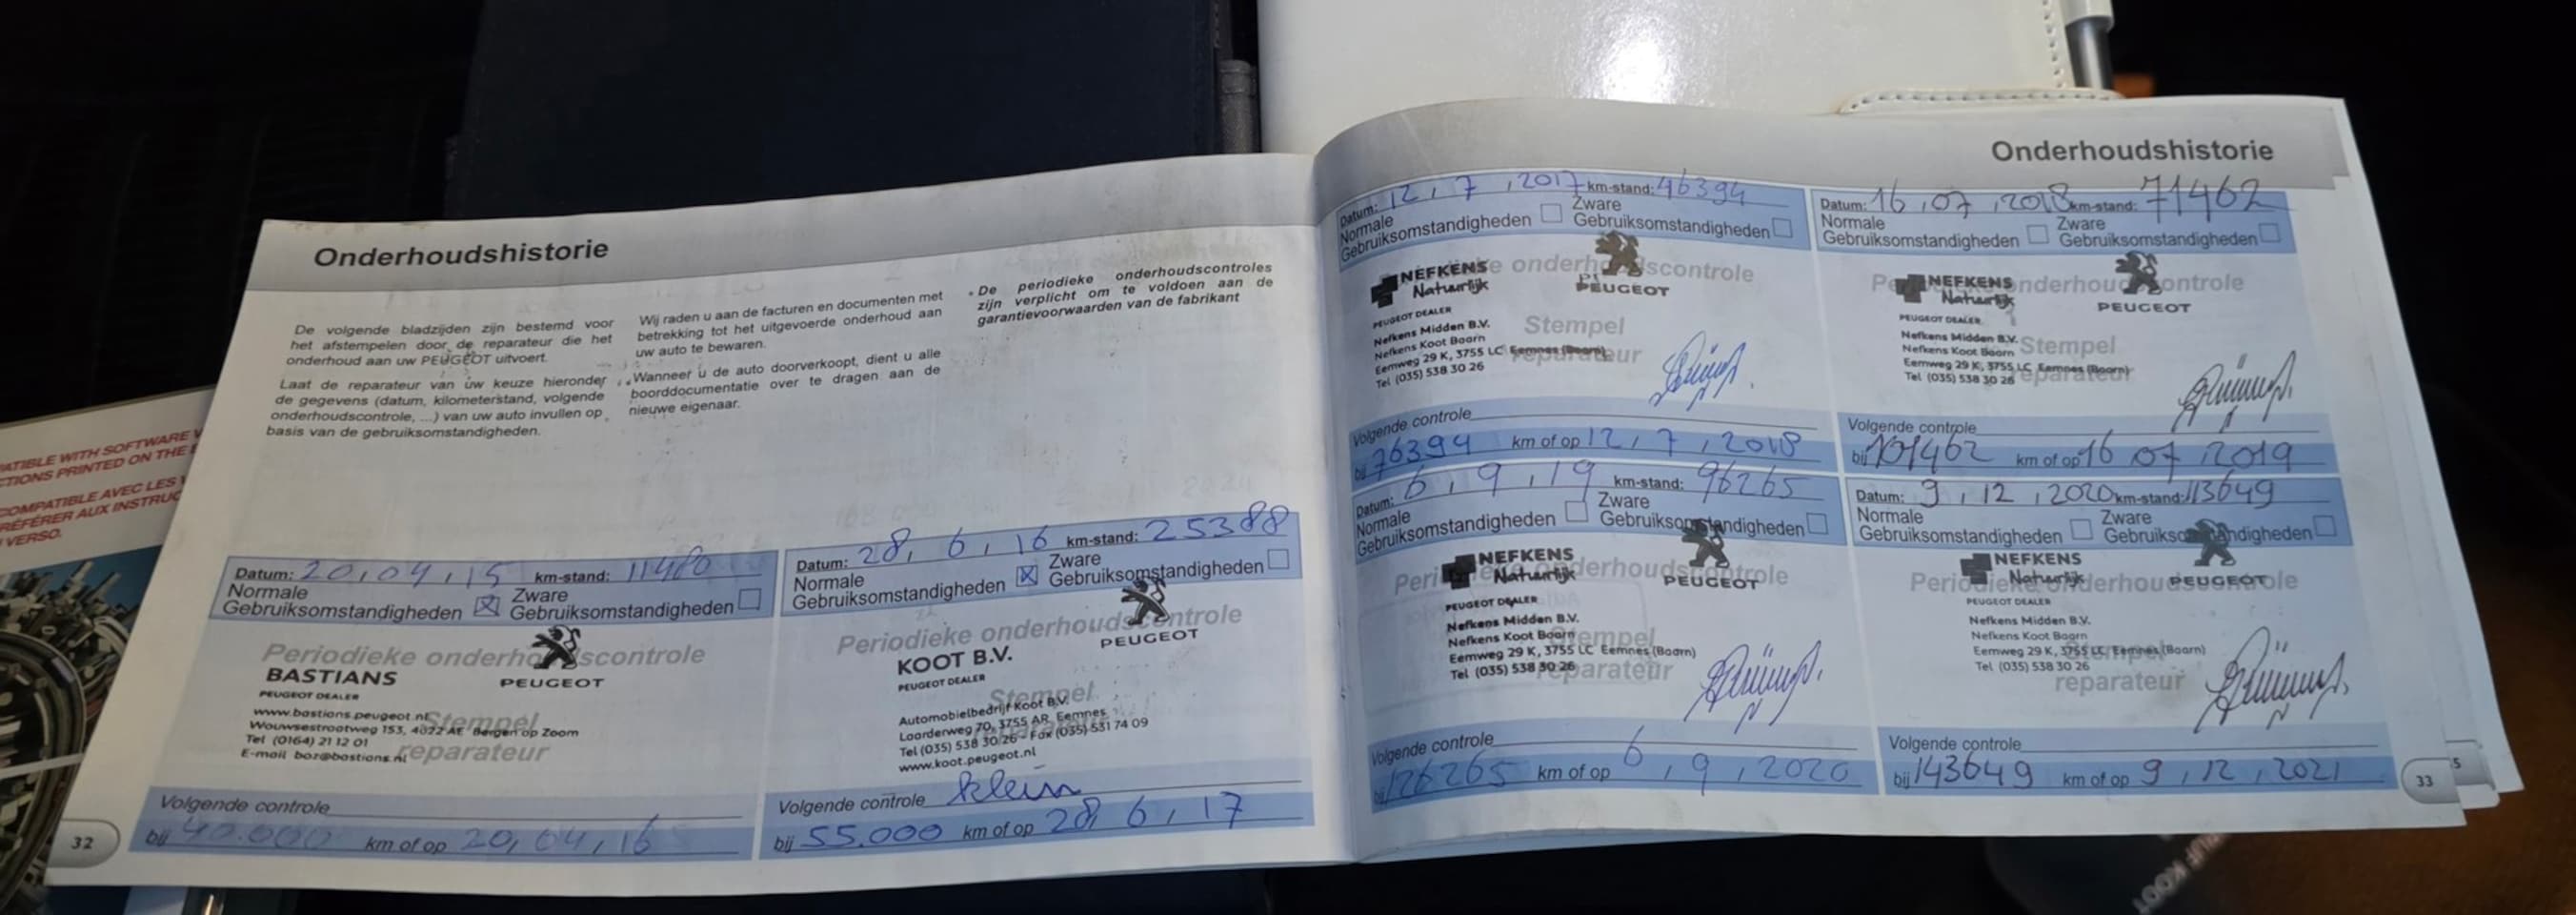 ATIBLE WITH SOFTWARE V
CTIONS PRINTED ON THE
COMPATIBLE AVEC LES
RÉFÉRER AUX INSTRUC
VERSO.
Onderhoudshistorie
De volgende bladzijden zijn bestemd voor
het afstempelen door de reparateur die het
onderhoud aan uw PEUGEOT uitvoert.
Laat de reparateur van uw keuze hieronder
de gegevens (datum, kilometerstand, volgende
onderhoudscontrole, ...) van uw auto invullen op
basis van de gebruiksomstandigheden.
Wij raden u aan de facturen en documenten met
betrekking tot het uitgevoerde onderhoud aan
uw auto te bewaren.
Wanneer u de auto doorverkoopt, dient u alle
boorddocumentatie over te dragen aan de
nieuwe eigenaar.
De periodieke onderhoudscontroles
zijn verplicht om te voldoen aan de
garantievoorwaarden van de fabrikant
Datum: 20, 04, 15 km-stand: 11480
Normale Zware
Gebruiksomstandigheden Gebruiksomstandigheden
Periodieke onderhoudscontrole
BASTIANS PEUGEOT
PEUGEOT DEALER
www.bastians.peugeot.nl
Stempel
Wouwsestraatweg 153, 4622 AE Bergen op Zoom
Tel (0164) 21 12 01
E-mail boz@bastians.nl
reparateur
Volgende controle
bij 40.000 km of op 20, 04, 16
32
Datum: 28, 6, 16 km-stand: 25388
Normale Zware
Gebruiksomstandigheden Gebruiksomstandigheden
Periodieke onderhoudscontrole
KOOT B.V. PEUGEOT
PEUGEOT DEALER
Stempel
Automobielbedrijf Koot B.V.
Laarderweg 70, 3755 AR Eemnes
Tel (035) 538 30 26 - Fax (035) 531 74 09
www.koot.peugeot.nl
Volgende controle klein
bij 55.000 km of op 28, 6, 17
Onderhoudshistorie
Datum: 12, 7, 2017 km-stand: 46394
Normale Zware
Gebruiksomstandigheden Gebruiksomstandigheden
NEFKENS
Natuurlijk PEUGEOT
PEUGEOT DEALER
Nefkens Midden B.V.
Stempel
Nefkens Koot Baarn
Eemweg 29 K, 3755 LC Eemnes (Baarn)
Tel (035) 538 30 26
Volgende controle
bij 76394 km of op 12, 7, 2018
Datum: 16, 07, 2018 km-stand: 71462
Normale Zware
Gebruiksomstandigheden Gebruiksomstandigheden
NEFKENS
Natuurlijk PEUGEOT
PEUGEOT DEALER
Nefkens Midden B.V.
Stempel
Nefkens Koot Baarn
Eemweg 29 K, 3755 LC Eemnes (Baarn)
Tel (035) 538 30 26
reparateur
Volgende controle
bij 101462 km of op 16 07 2019
Datum: 6, 9, 19 km-stand: 96265
Normale Zware
Gebruiksomstandigheden Gebruiksomstandigheden
NEFKENS
Natuurlijk PEUGEOT
PEUGEOT DEALER
Nefkens Midden B.V.
Nefkens Koot Baarn
Stempel
Eemweg 29 K, 3755 LC Eemnes (Baarn)
Tel (035) 538 30 26
reparateur
Volgende controle
bij 126265 km of op 6, 9, 2020
Datum: 9, 12, 2020 km-stand: 113649
Normale Zware
Gebruiksomstandigheden Gebruiksomstandigheden
NEFKENS
Natuurlijk PEUGEOT
PEUGEOT DEALER
Nefkens Midden B.V.
Nefkens Koot Baarn
Eemweg 29 K, 3755 LC Eemnes (Baarn)
Tel (035) 538 30 26
reparateur
Volgende controle
bij 143649 km of op 9, 12, 2021
33
5